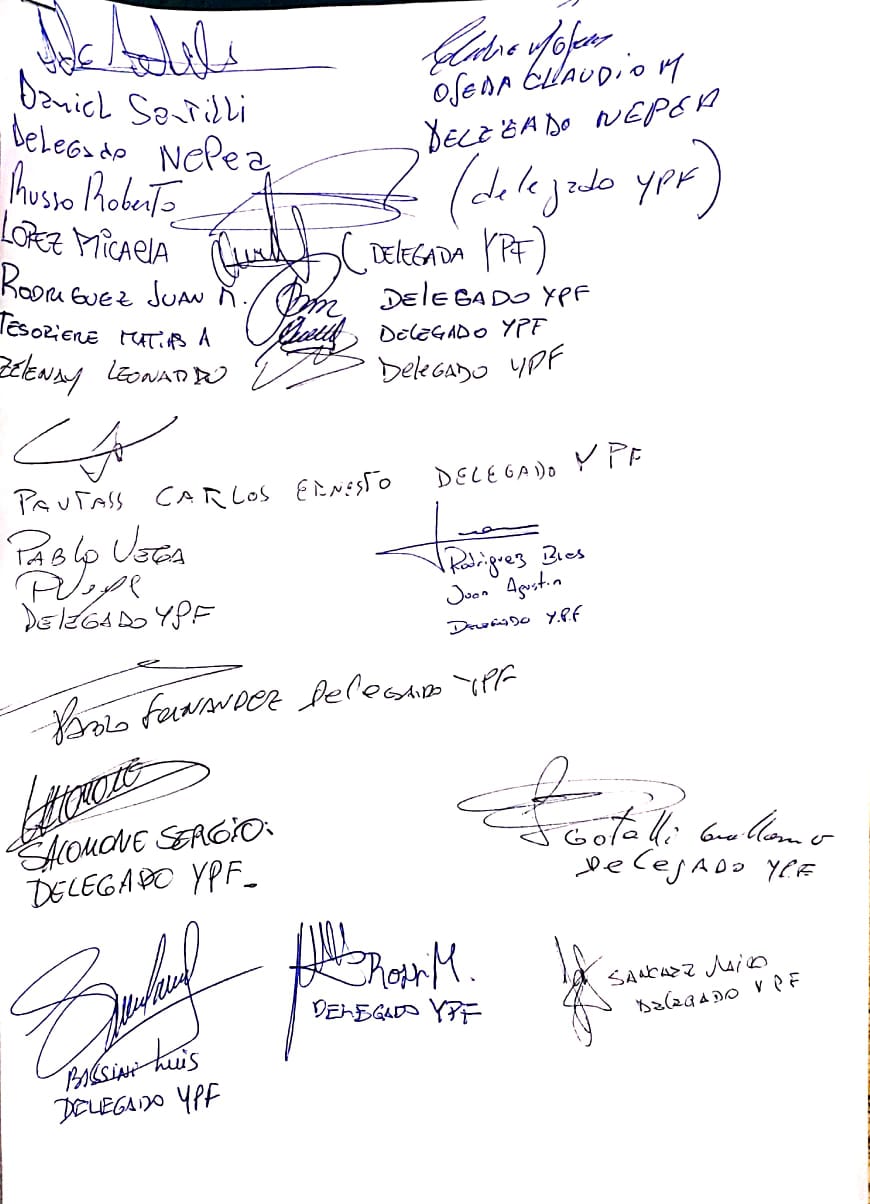 Daniel Santilli
Delegado NEPEA
OJEDA CLAUDIO M
DELEGADO NEPEA
Russo Roberto (delegado YPF)
LOPEZ MICAELA (DELEGADA YPF)
RODRIGUEZ JUAN M. DELEGADO YPF
TESORIERE MATIAS A DELEGADO YPF
ZELENAY LEONARDO DELEGADO YPF
PAUTASS CARLOS ERNESTO DELEGADO YPF
PABLO VEGA
DELEGADO YPF
Rodriguez Bies
Juan Agustin
Delegado Y.P.F
PABLO FERNANDEZ Delegado YPF
SALOMONE SERGIO.
DELEGADO YPF-
Gotelli Guillermo
Delegado YPF
Luis
DELEGADO YPF
Rossi M.
DELEGADO YPF
DELEGADO YPF